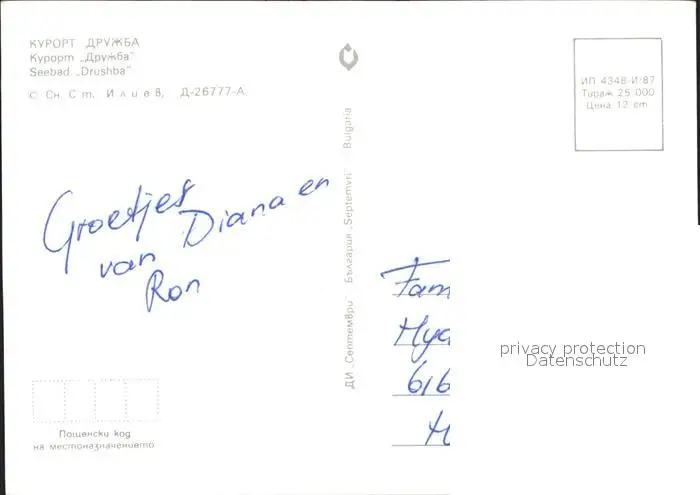 КУРОРТ ДРУЖБА
Курорт „Дружба"
Seebad „Drushba"
© Сн. Ст. Илиев, Д-26777-А
ИП 4348-И/87
Тираж 25 000
Цена 12 ст
Groetjes
van Diana en
Ron
ДИ „Септември" България „Septemvri" Bulgaria
Fam
616
privacy protection
Datenschutz
Пощенски код
на местоназначението